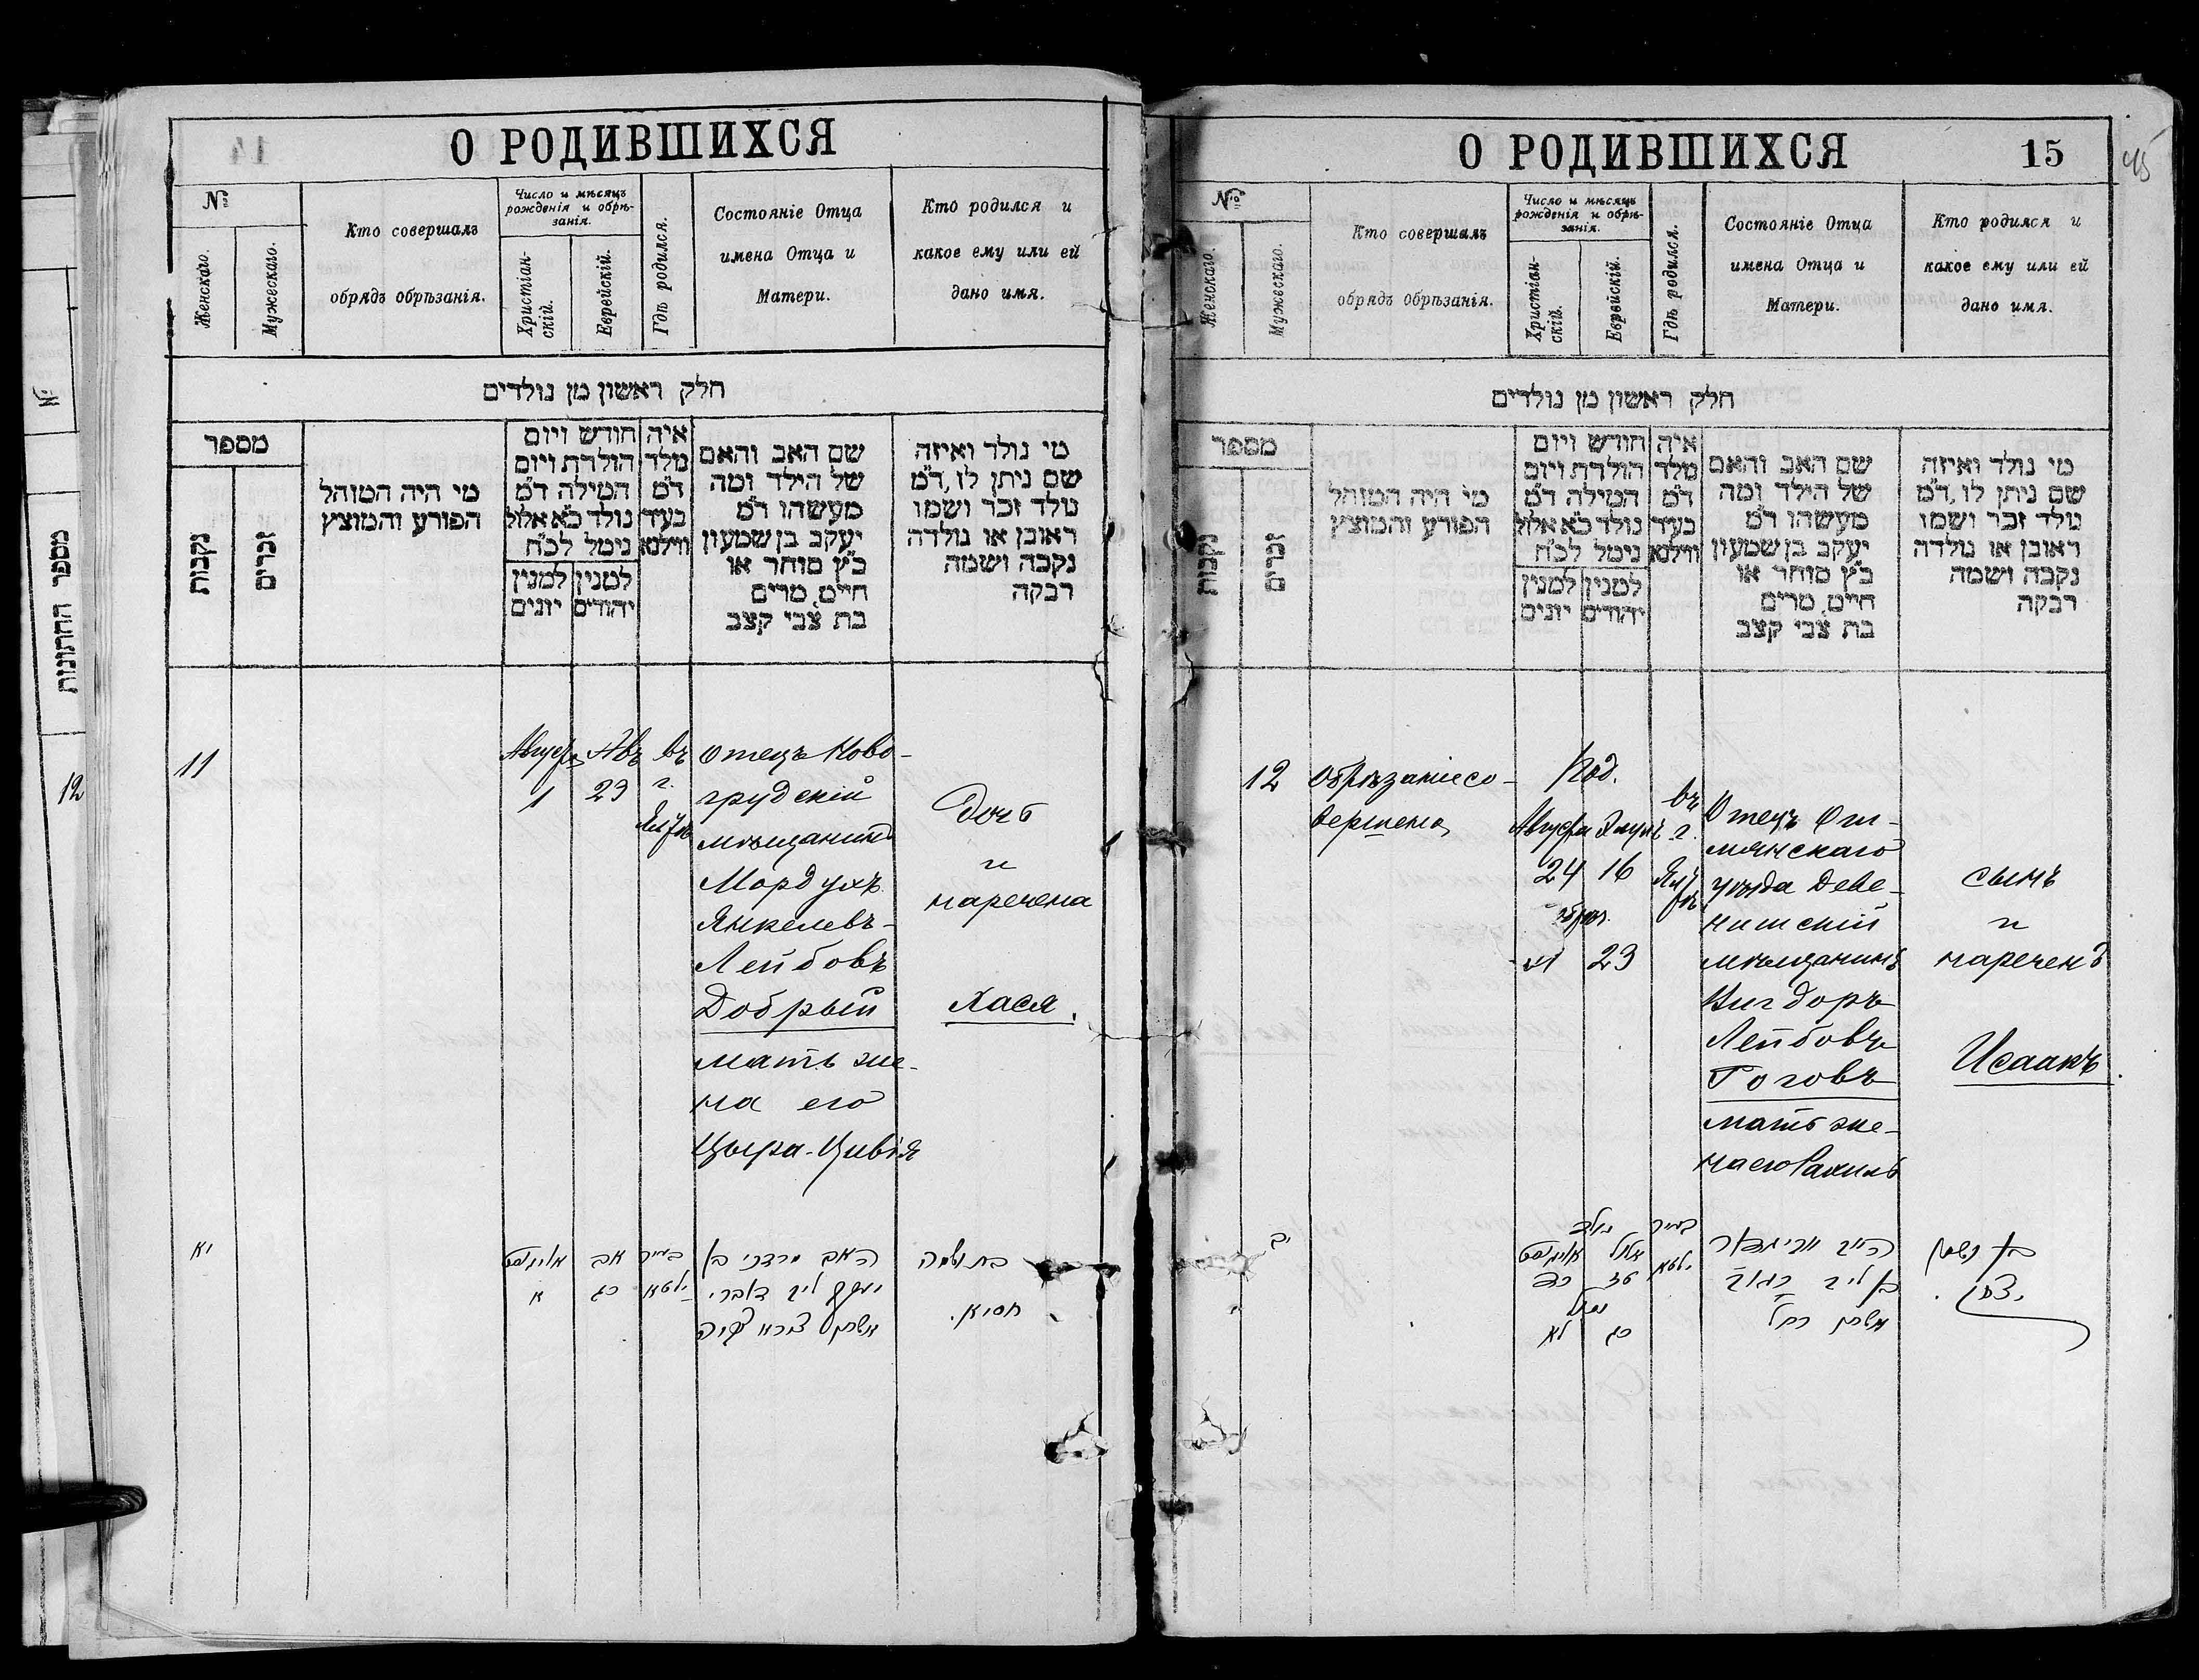 О РОДИВШИХСЯ
№
Женскаго.
Мужескаго.
Кто совершалъ
обрядъ обрѣзанія.
Число и мѣсяцъ
рожденія и обрѣ-
занія.
Христіан-
скій.
Еврейскій.
Гдѣ родился.
Состояніе Отца
имена Отца и
Матери.
Кто родился и
какое ему или ей
дано имя.
חלק ראשון מן נולדים
מספר
נקבות
זכרים
מי היה המוהל
הפורע והמוצץ
חודש ויום
הולדת ויום
המילה ד"מ
נולד כ"א אלול
נימל לכ"ח
למנין למנין
יהודים יונים
איה
נולד
ד"מ
בעיר
ווילנא
שם האב והאם
של הילד ומה
מעשהו ד"מ
יעקב בן שמעון
כ"ץ סוחר או
חיים, מרים
בת צבי קצב
מי נולד ואיזה
שם ניתן לו, ד"מ
נולד זכר ושמו
ראובן או נולדה
נקבה ושמה
רבקה
11
Августа
1
Авъ
23
въ
г.
Отецъ Ново-
грудскій
мѣщанинъ
Мордухъ
Янкелевъ-
Лейбовъ
Добрый
мать же-
на его
Цыра-Цивія
Дочь
и
наречена
Хася.
יא
אויגוסט
א
אב
כג
בעיר
ילטא
האב מרדכי בן
יעקב ליב דאברי
אשתו צירא צביה
בת ושמה
חסיא.
מספר החתונות
12
О РОДИВШИХСЯ
15
№
Женскаго.
Мужескаго.
Кто совершалъ
обрядъ обрѣзанія.
Число и мѣсяцъ
рожденія и обрѣ-
занія.
Христіан-
скій.
Еврейскій.
Гдѣ родился.
Состояніе Отца
имена Отца и
Матери.
Кто родился и
какое ему или ей
дано имя.
חלק ראשון מן נולדים
מספר
נקבות
זכרים
מי היה המוהל
הפורע והמוצץ
חודש ויום
הולדת ויום
המילה ד"מ
נולד כ"א אלול
נימל לכ"ח
למנין למנין
יהודים יונים
איה
נולד
ד"מ
בעיר
ווילנא
שם האב והאם
של הילד ומה
מעשהו ד"מ
יעקב בן שמעון
כ"ץ סוחר או
חיים, מרים
בת צבי קצב
מי נולד ואיזה
שם ניתן לו, ד"מ
נולד זכר ושמו
ראובן או נולדה
נקבה ושמה
רבקה
12
Обрѣзаніе со-
вершено
Род.
Августа
24 16
обрѣз.
23
въ
г.
Отецъ Ош-
мянскаго
уѣзда Деве-
нишскій
мѣщанинъ
Вигдоръ
Лейбовъ
Роговъ
мать же-
на его Рахиль
сынъ
и
нареченъ
Исаакъ.
יב
נולד
אויגוסט
כד
אלול
טז
נימול
לא
כג
בעיר
ילטא
בן ליב
אשתו רחל
בן ושמו
יצחק.